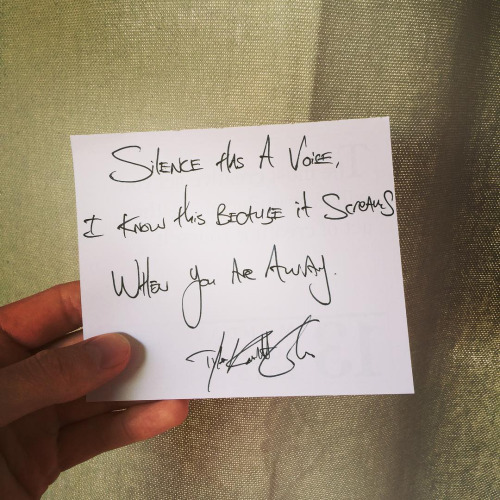 Silence Has A Voice,
I Know this Because it Screams
When you Are Away.
Tyler Knott Gregson